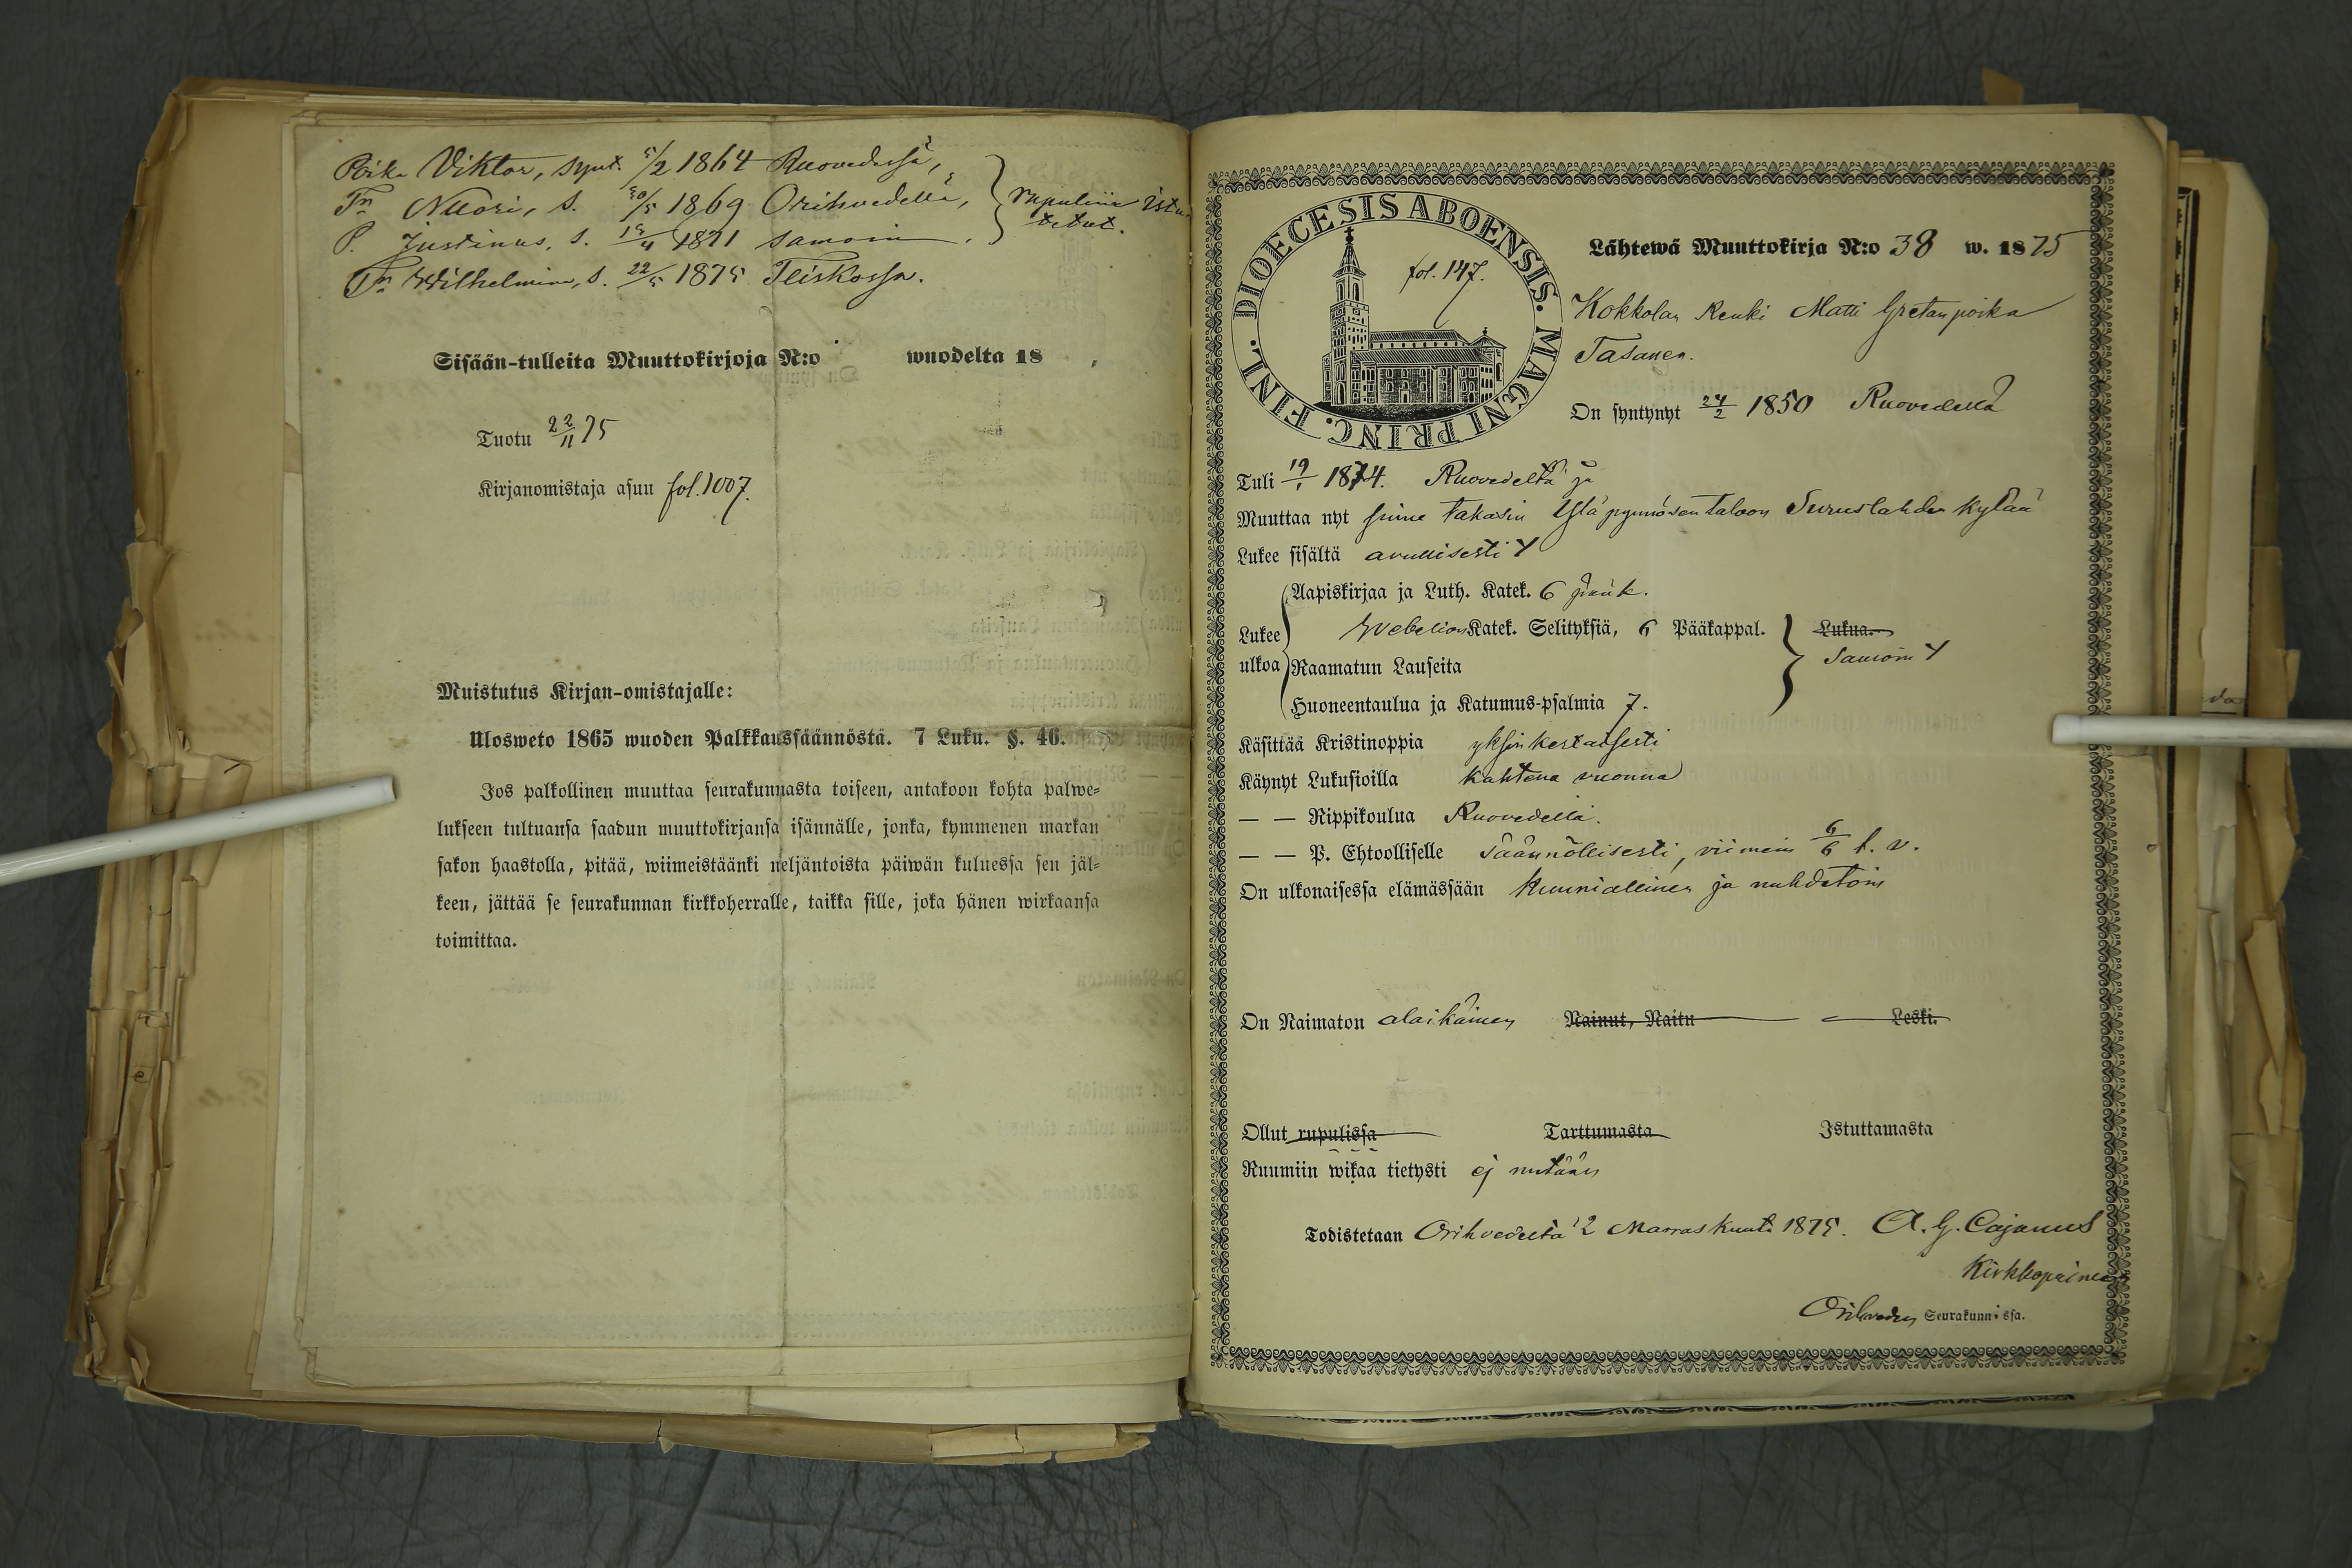 Poika Viktor, synt. 5/2 1864 Ruovedessä,
Tr Nuori, s. 30/5 1869 Orihvedellä,
P. Justinus, s. 15/4 1871 samoin.
rupuliin istutetut.
Tr Wilhelmina, s. 22/5 1875 Teiskossa.
Sisään-tulleita Muuttokirjoja N:o wuodelta 18
Tuotu 22/11 75
Kirjanomistaja asuu fol. 1007.
Muistutus Kirjan-omistajalle:
Ulosweto 1865 wuoden Palkkaussäännöstä. 7 Luku. §. 46.
Jos palkollinen muuttaa seurakunnasta toiseen, antakoon kohta palwe-
lukseen tultuansa saadun muuttokirjansa isännälle, jonka, kymmenen markan
sakon haastolla, pitää, wiimeistäänki neljäntoista päiwän kuluessa sen jäl-
keen, jättää se seurakunnan kirkkoherralle, taikka sille, joka hänen wirkaansa
toimittaa.
DIOECESIS ABOENSIS. MAGNI PRINC. FINL.
fol. 147.
Lähtewä Muuttokirja N:o 38 w. 1875
Kokkolan Renki Matti Gretanpoika
Tasanen.
On syntynyt 24/2 1850 Ruovedellä
Tuli 19/1 1874. Ruovedeltä ja
Muuttaa nyt sinne takasin taloon kylää
Lukee sisältä avullisesti
Lukee ulkoa
Aapiskirjaa ja Luth. Katek. 6 pääk.
Katek. Selityksiä, 6 Pääkappal.
Raamatun Lauseita
Huoneentaulua ja Katumus-psalmia 7.
Lukua.
Samoin
Käsittää Kristinoppia yksinkertaisesti
Käynyt Lukusioilla kahtena vuonna
— — Rippikoulua Ruovedellä.
— — P. Ehtoolliselle säännöllisesti, viimein 6/6 t. v.
On ulkonaisessa elämässään kunniallinen ja nuhdetoin
On Naimaton alaikäinen Nainut, Naitu Leski.
Ollut rupulissa Tarttumasta Istuttamasta
Ruumiin wikaa tietysti ej mitään
Todistetaan Orihvedeltä 12 Marraskuuta 1875. A. G. Cajanus
Kirkkopaimen
Orihveden Seurakunnissa.